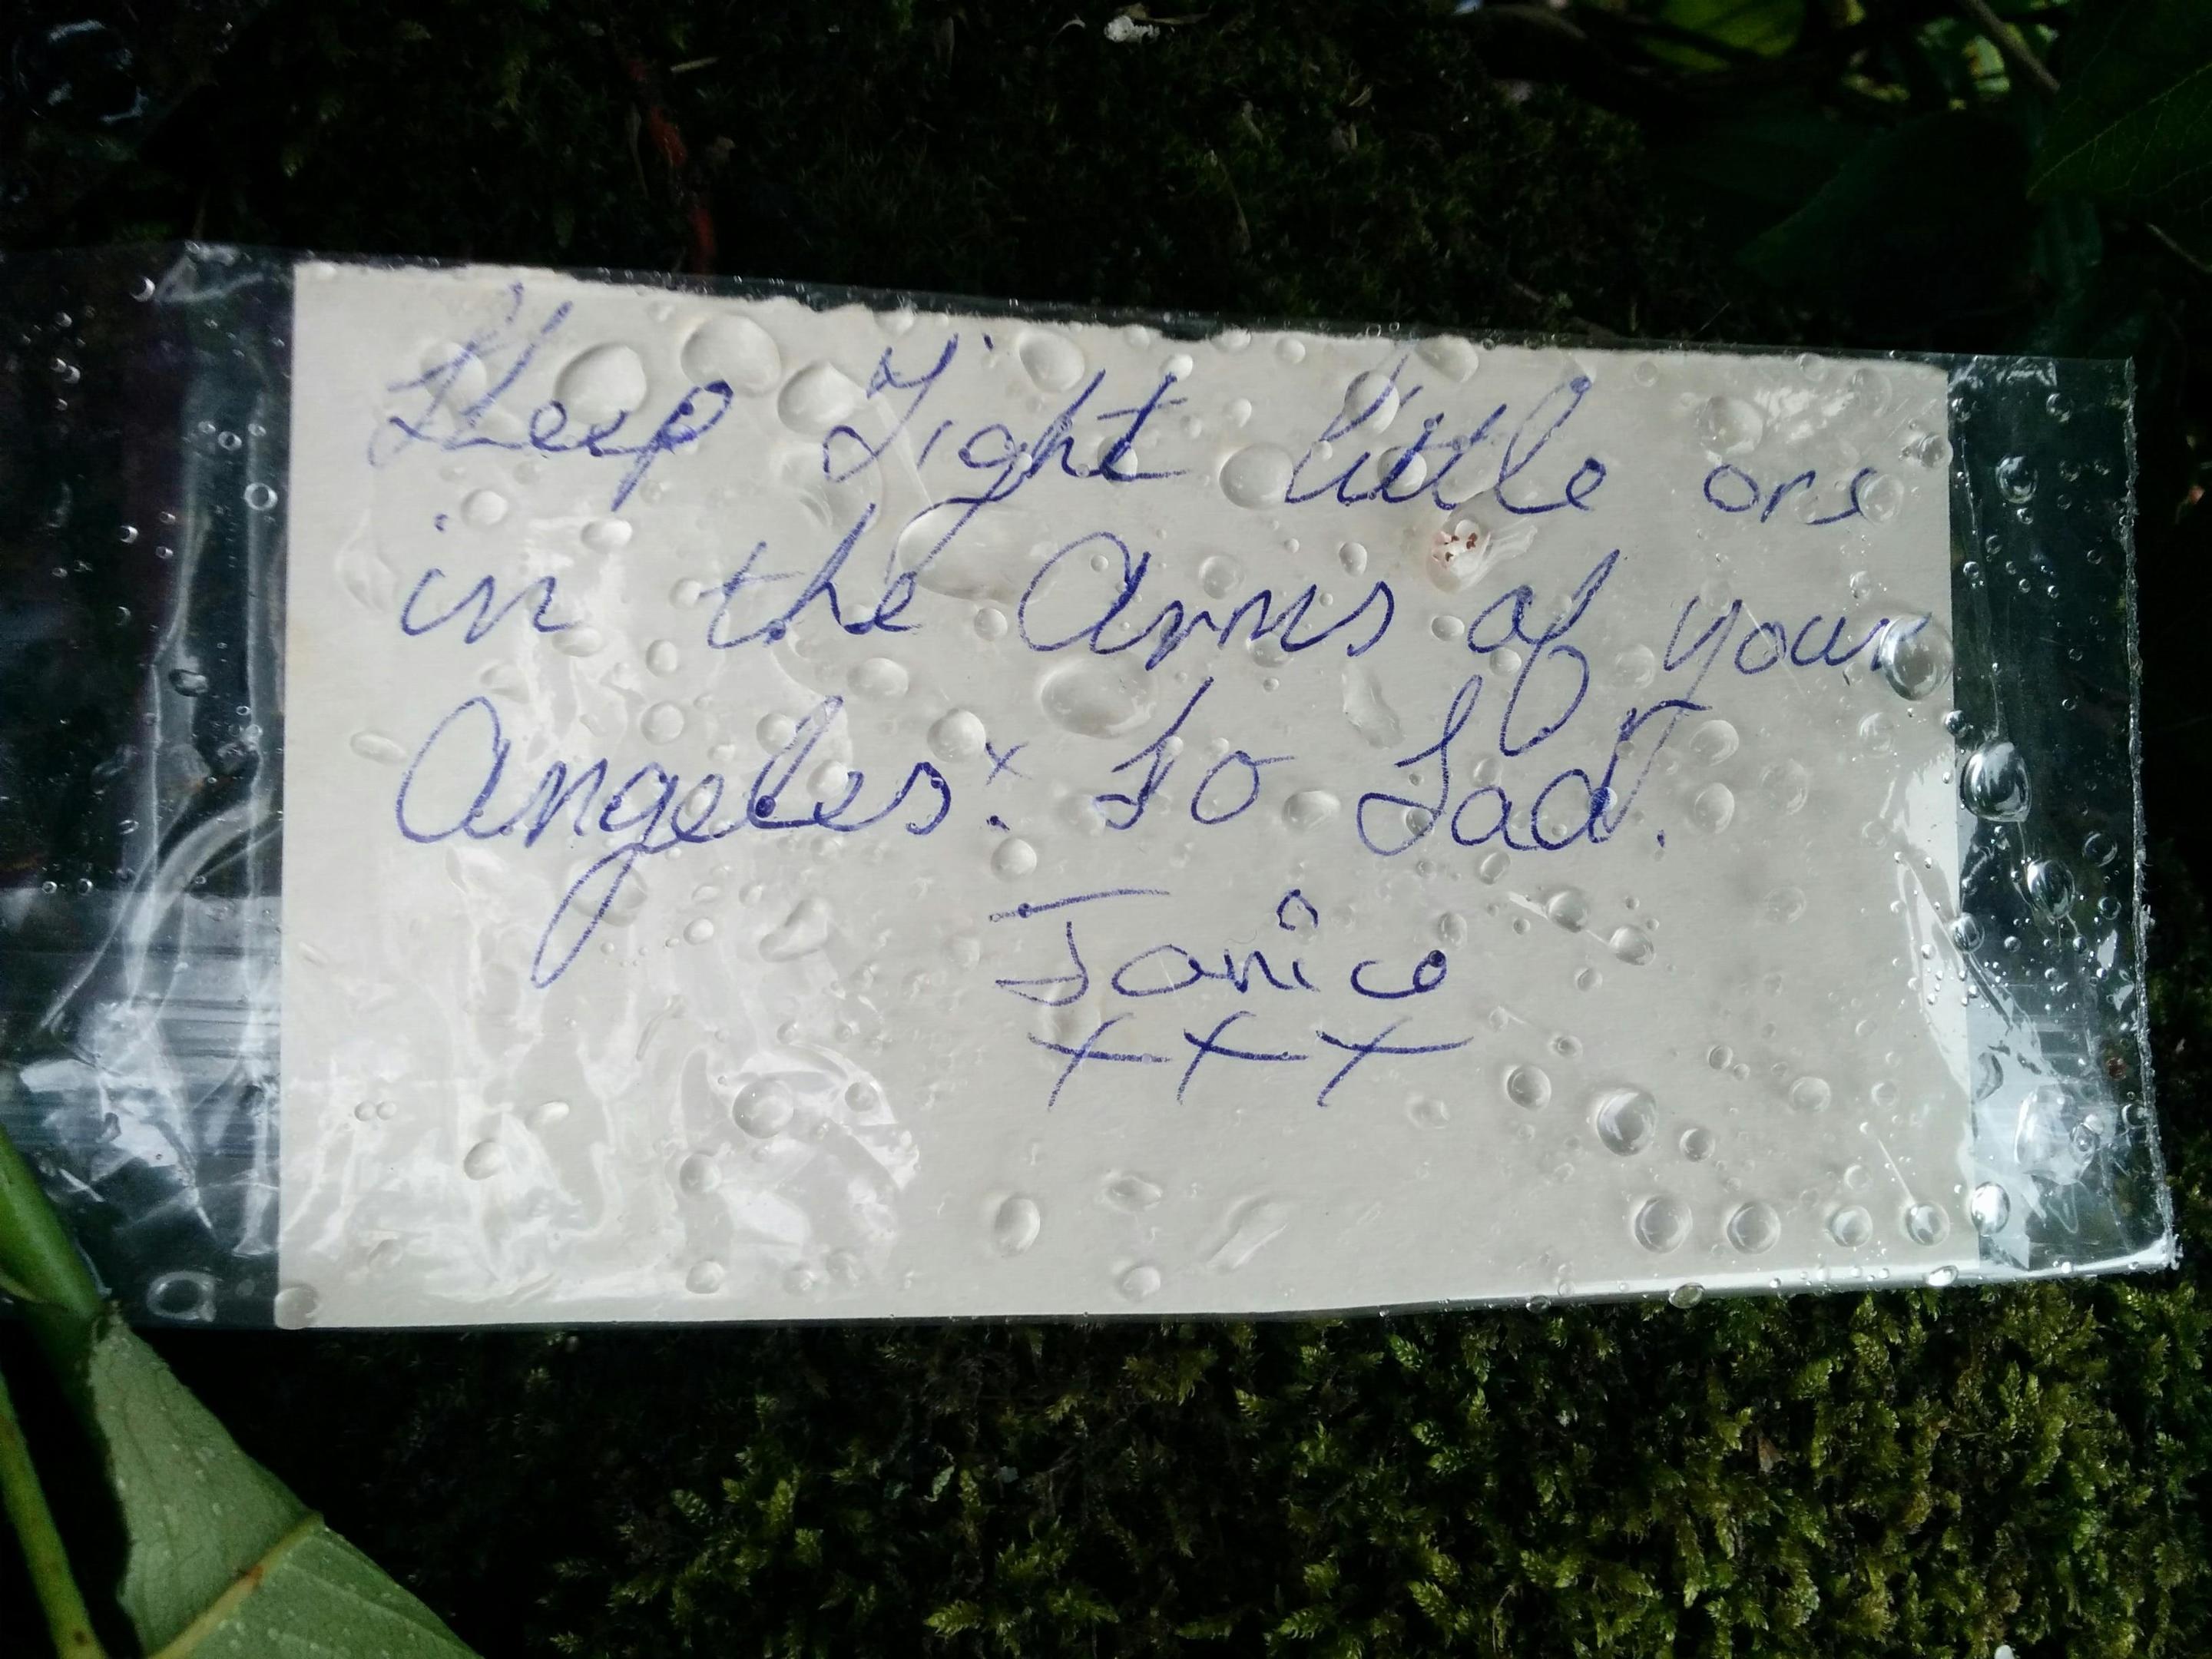 Sleep Tight little one
in the Arms of your
Angeles.x So Sad.
Janice
x x x